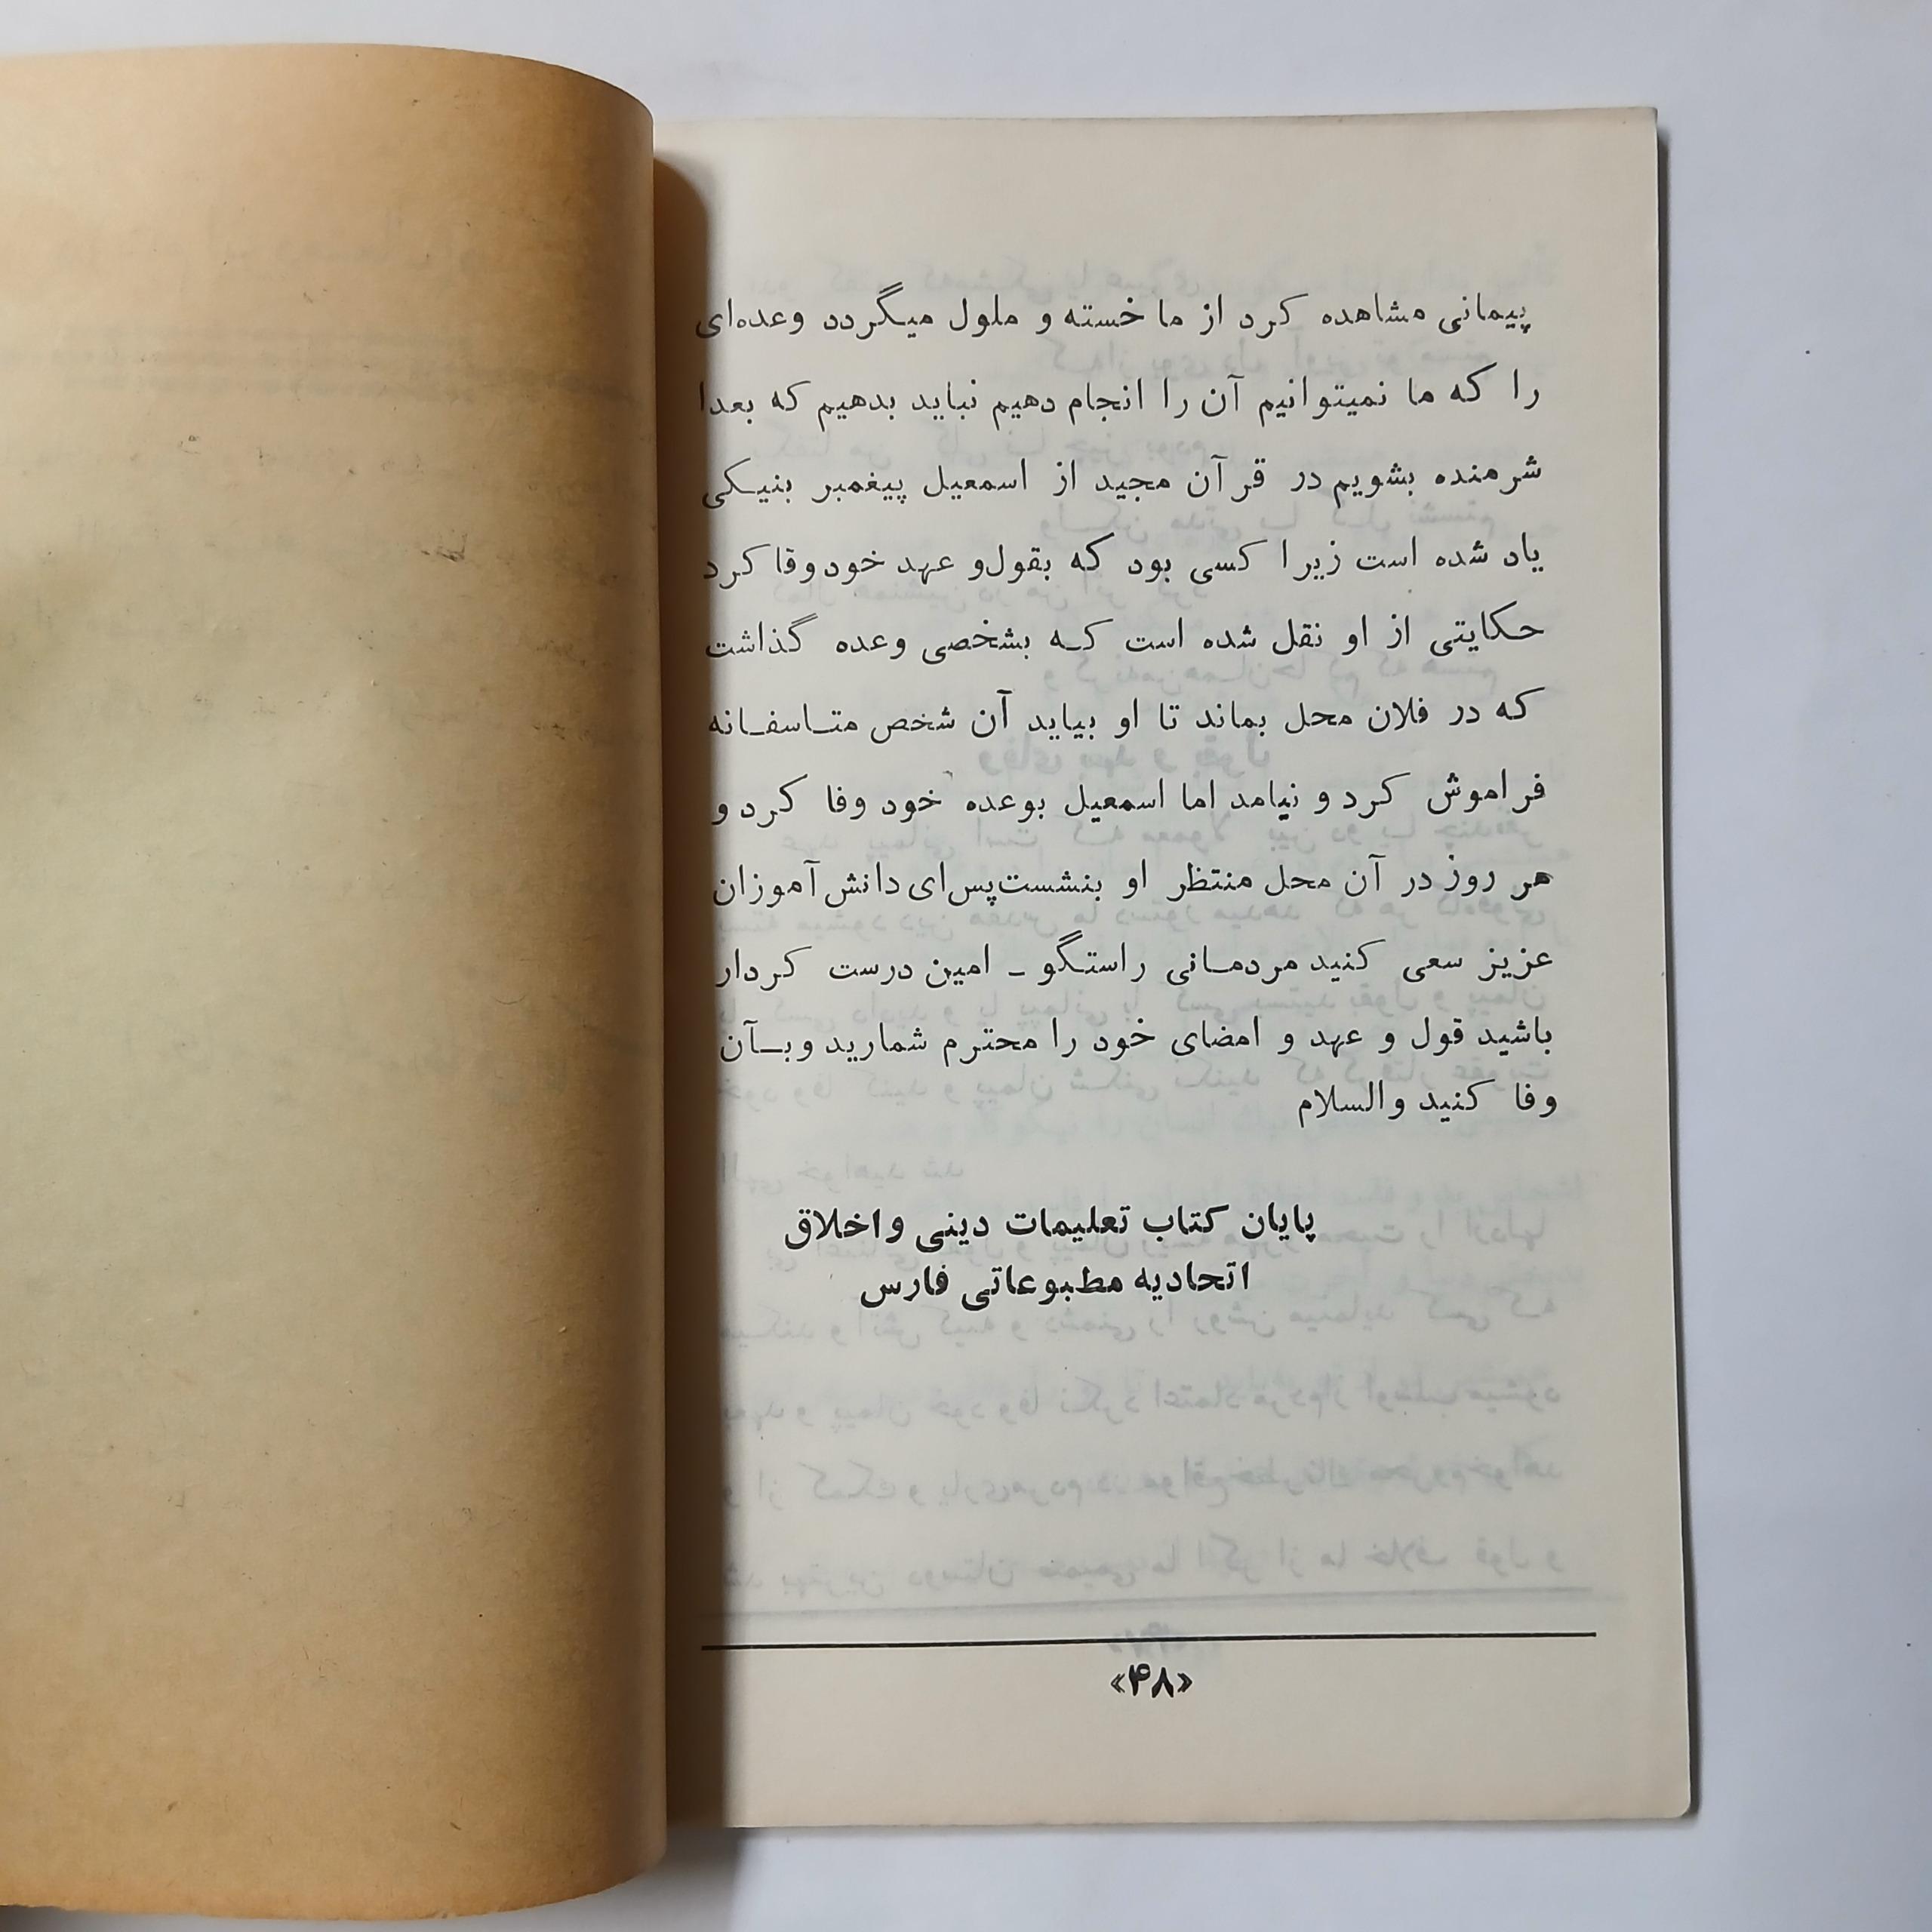 پیمانی مشاهده کرد از ما خسته و ملول میگردد وعده‌ای
را که ما نمیتوانیم آن را انجام دهیم نباید بدهیم که بعدا
شرمنده بشویم در قرآن مجید از اسمعیل پیغمبر بنیکی
یاد شده است زیرا کسی بود که بقول‌و عهد خود وفا کرد
حکایتی از او نقل شده است که بشخصی وعده گذاشت
که در فلان محل بماند تا او بیاید آن شخص متاسفانه
فراموش کرد و نیامد اما اسمعیل بوعده خود وفا کرد و
هر روز در آن محل منتظر او بنشست پس ای دانش آموزان
عزیز سعی کنید مردمانی راستگو ـ امین درست کردار
باشید قول و عهد و امضای خود را محترم شمارید و بآن
وفا کنید والسلام
پایان کتاب تعلیمات دینی واخلاق
اتحادیه مطبوعاتی فارس
«۴۸»